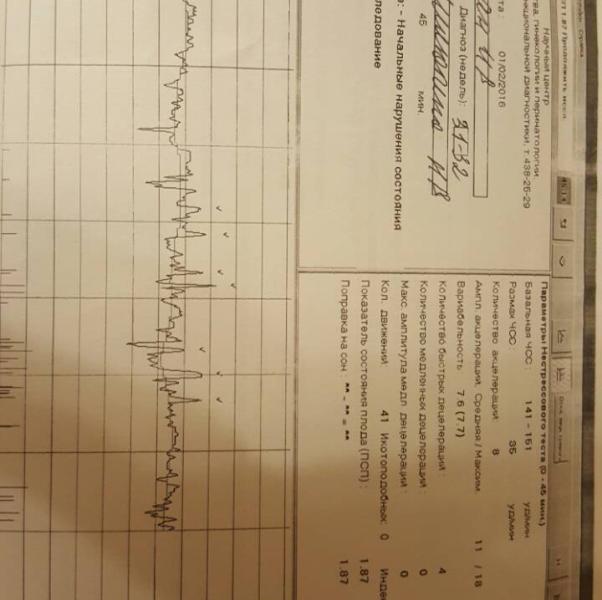 Научный центр
гинекологии и перинатологии
функциональной диагностики, т. 438-25-29
01/02/2016
Диагноз (недель): 31-32
45 мин.
- Начальные нарушения состояния
Параметры Нестрессового теста (0 - 45 мин.)
Базальная ЧСС: 141 - 151 уд/мин
Размах ЧСС: 35 уд/мин
Количество акцелераций: 8
Ампл. акцелераций. Средняя / Максим. 11 / 18
Вариабельность: 7.6 (7.7)
Количество быстрых децелераций: 4
Количество медленных децелераций: 0
Макс. амплитуда медл. децелераций: 0
Кол. движений: 41 Икотоподобных: 0
Показатель состояния плода (ПСП): 1.87
Поправка на сон: ** - ** = ** 1.87